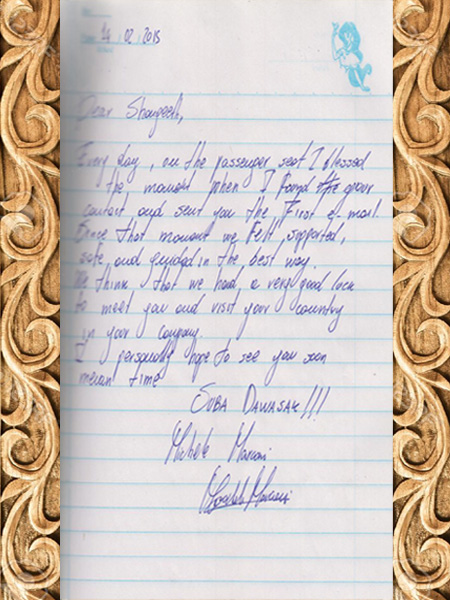 14 02 2015
Dear
Every day, on the passenger seat I blessed
the moment when I found the your
contact and sent you the first e mail.
Since that moment we felt, supported,
safe and guided in the best way.
We think that we had, a very good luck
to meet you and visit your country
in your company.
I personally hope to see you soon
mean time
SUBA DAWASAK!!!
Michele Mariani